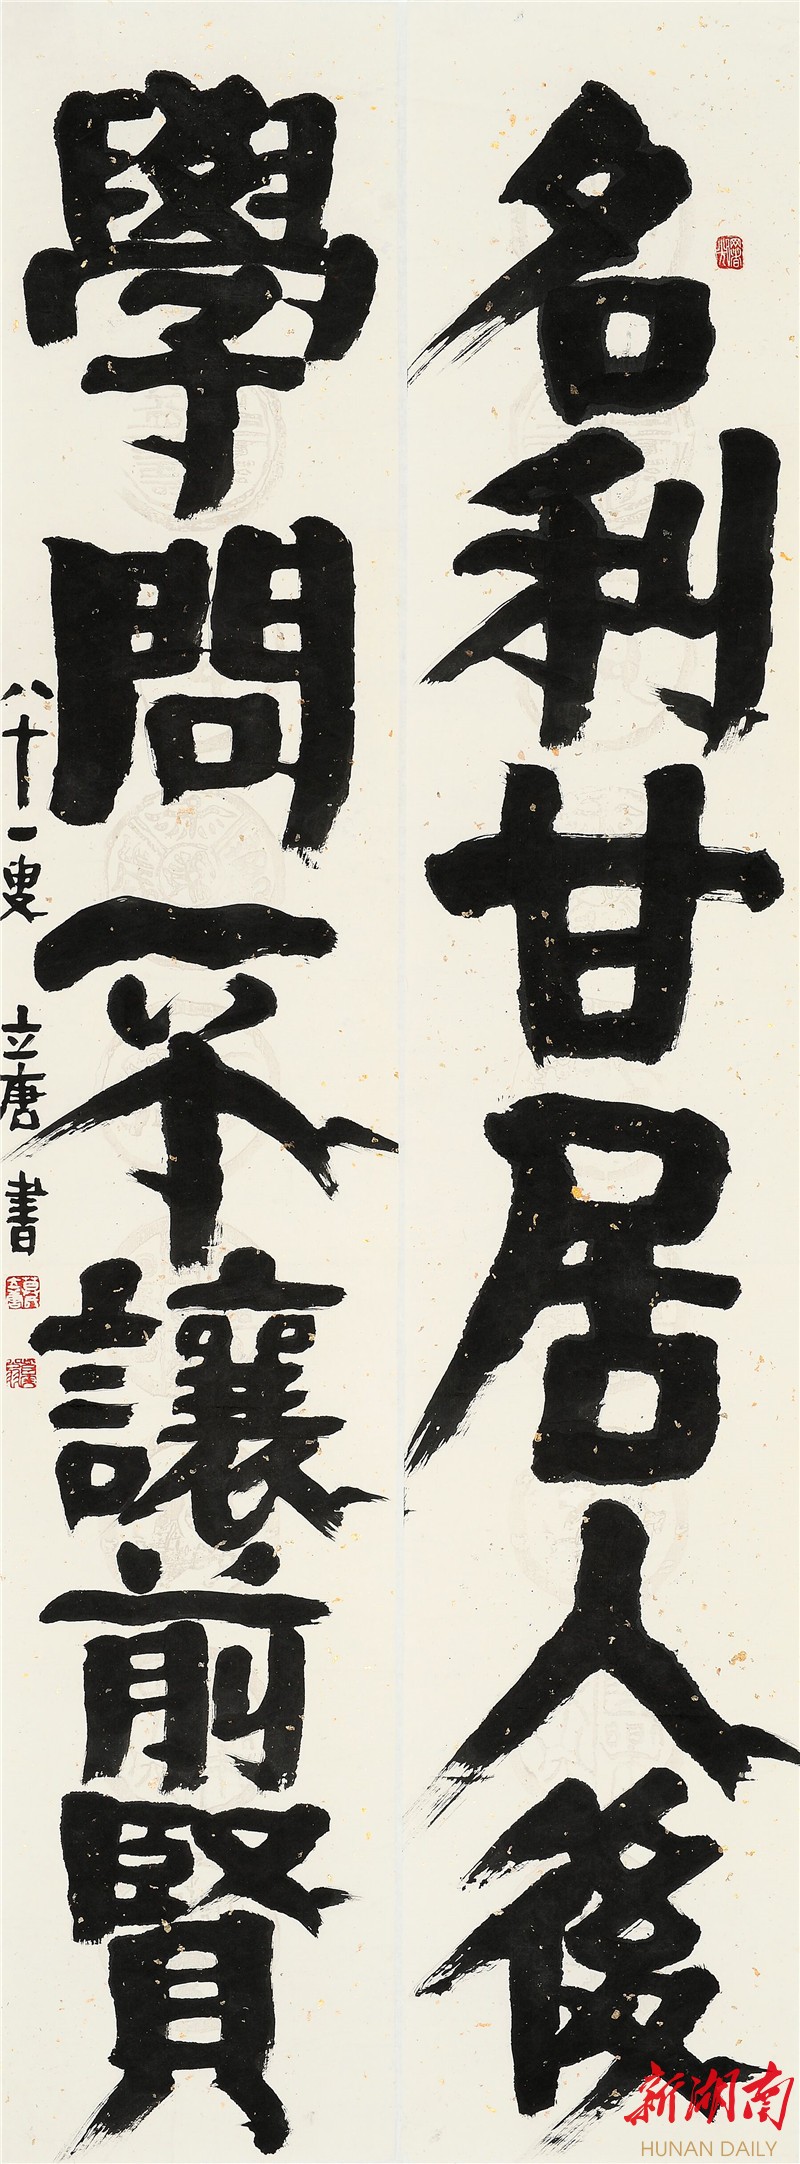 名利甘居人後
學問不讓前賢
八十一叟 立唐 書
新湖南
HUNAN DAILY